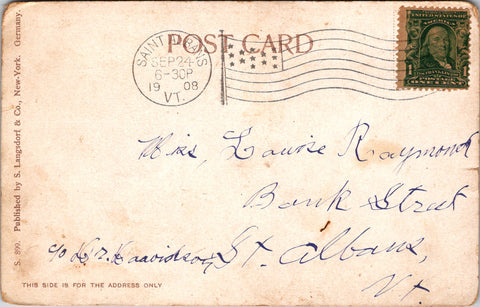 POST CARD
SAINT ALBANS
SEP 24
6-30P
1908
VT.
UNITED STATES OF AMERICA
1 1
POSTAGE
ONE CENT
Miss, Louise Raymond
Bank Street
St. Albans,
Vt.
c/o
THIS SIDE IS FOR THE ADDRESS ONLY
S. 890. Published by S. Langsdorf & Co., New-York. Germany.